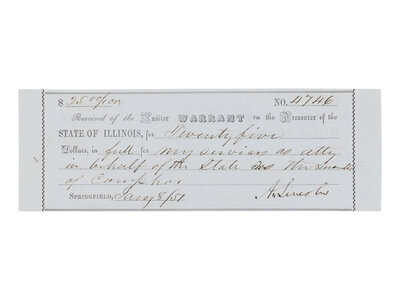 $ 25.00/100 NO. 4746
Received of the Auditor WARRANT on the Treasurer of the
STATE OF ILLINOIS, for Twenty five
Dollars, in full for my services as atty
in behalf of the State vs
of
SPRINGFIELD, 8/57 A. Lincoln